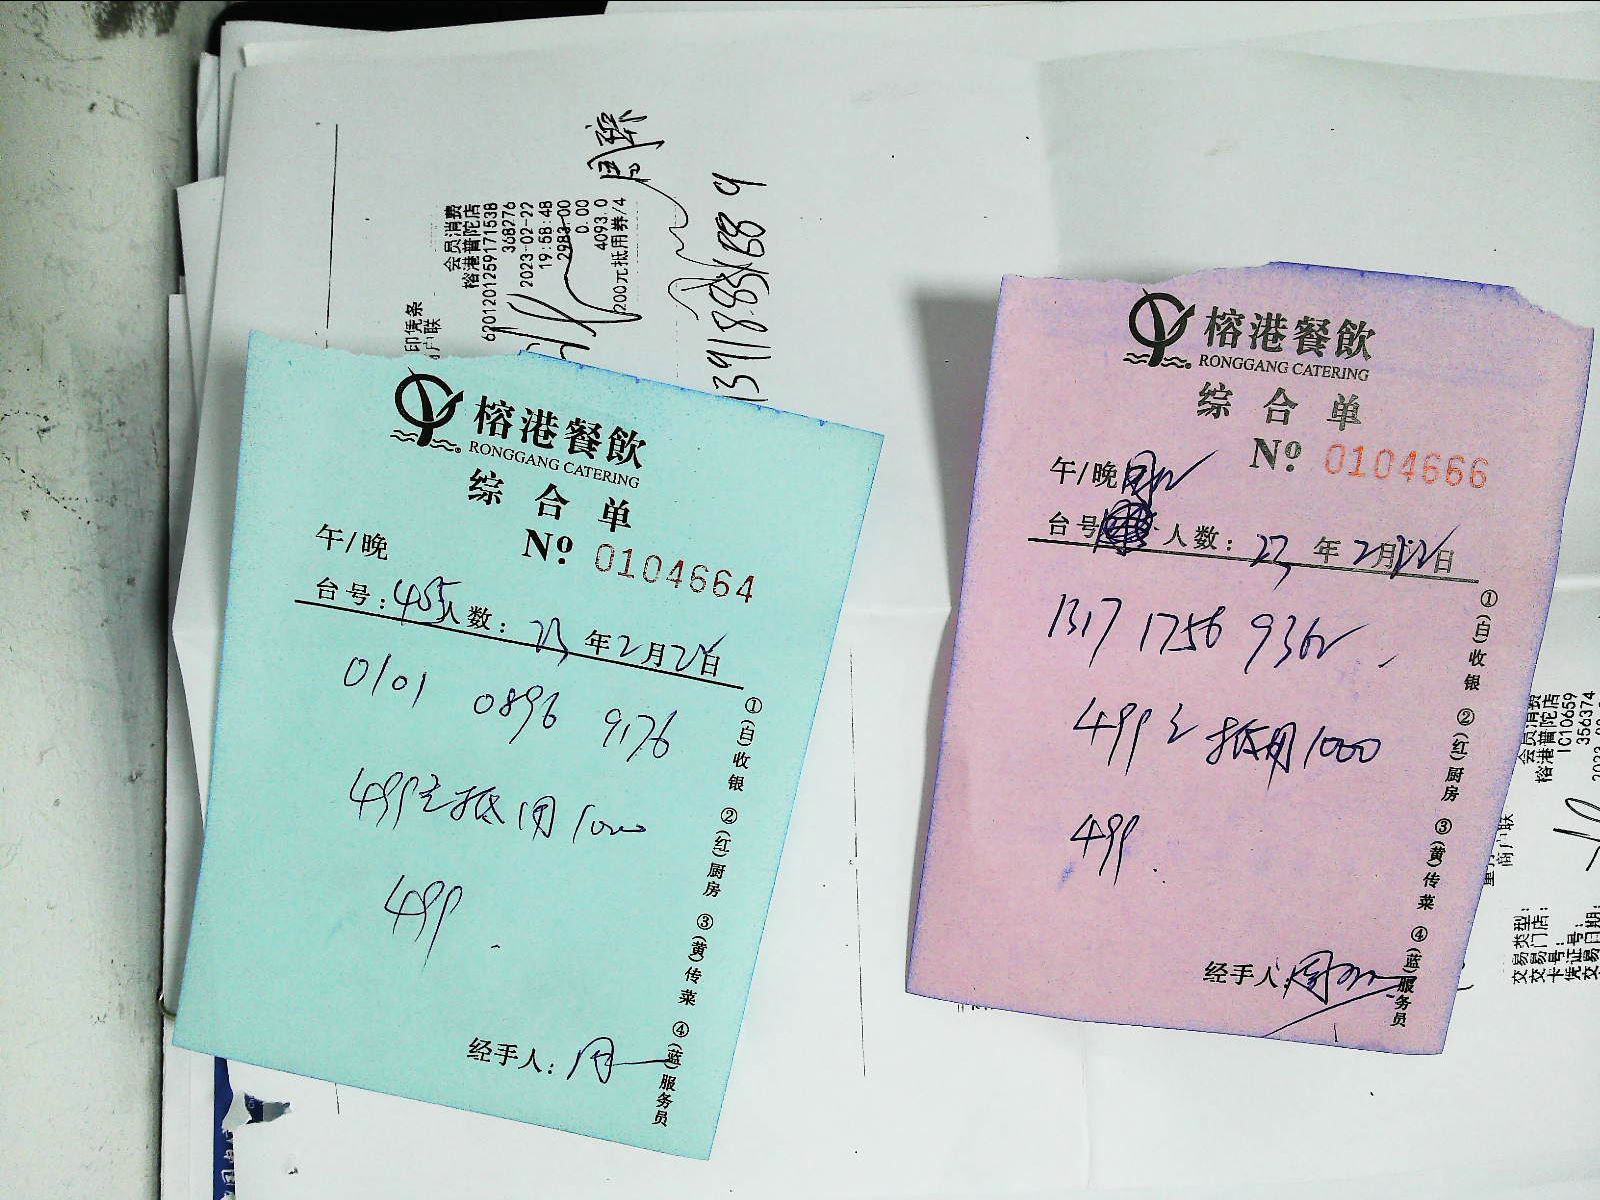 会员消费
榕港普陀店
6201201259171538
368276
2023-02-22
19:58:48
2983.00
0.00
4093.0
200元抵用券/4
印凭条
商户联
榕港餐飲
RONGGANG CATERING
综合单
午/晚
№ 0104664
台号: 455 人数: 23 年 2 月 22 日
0101 0896 9176
499元抵用1000
499
①(白)收银 ②(红)厨房 ③(黄)传菜 ④(蓝)服务员
经手人: 周
榕港餐飲
RONGGANG CATERING
综合单
№ 0104666
午/晚
台号 人数: 23 年 2 月 22 日
1317 1756 9362
499元抵用1000
499
①(白)收银 ②(红)厨房 ③(黄)传菜 ④(蓝)服务员
经手人: 周
会员消费
榕港普陀店
IC10659
356374
商户联
交易类型:
交易门店:
卡号:
凭证号:
交易日期: